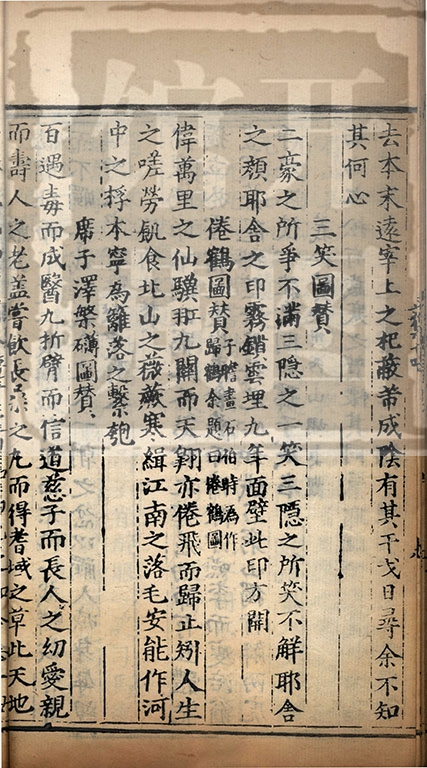 去本末遠宰上之杞蔽芾成陰有其干戈日尋余不知
其何心
三笑圖贊
二豪之所爭不滿三隱之一笑三隱之所笑不解耶舍
之頷耶舍之印霧鎖雲埋九年面壁此印方開
倦鶴圖贊 子瞻畫石伯時為作
歸鶴余題曰倦鶴圖
偉萬里之仙驥九關而天翔亦倦飛而歸止矧人生
之嗟勞飢食北山之薇蕨寒緝江南之落毛安能作河
中之桴本寧為籬落之繫匏
席子澤槃礴圖贊
百遇毒而成醫九折臂而信道慈子而長人之幼愛親
而壽人之老蓋嘗飲長桑之九而得耆域之草此天地